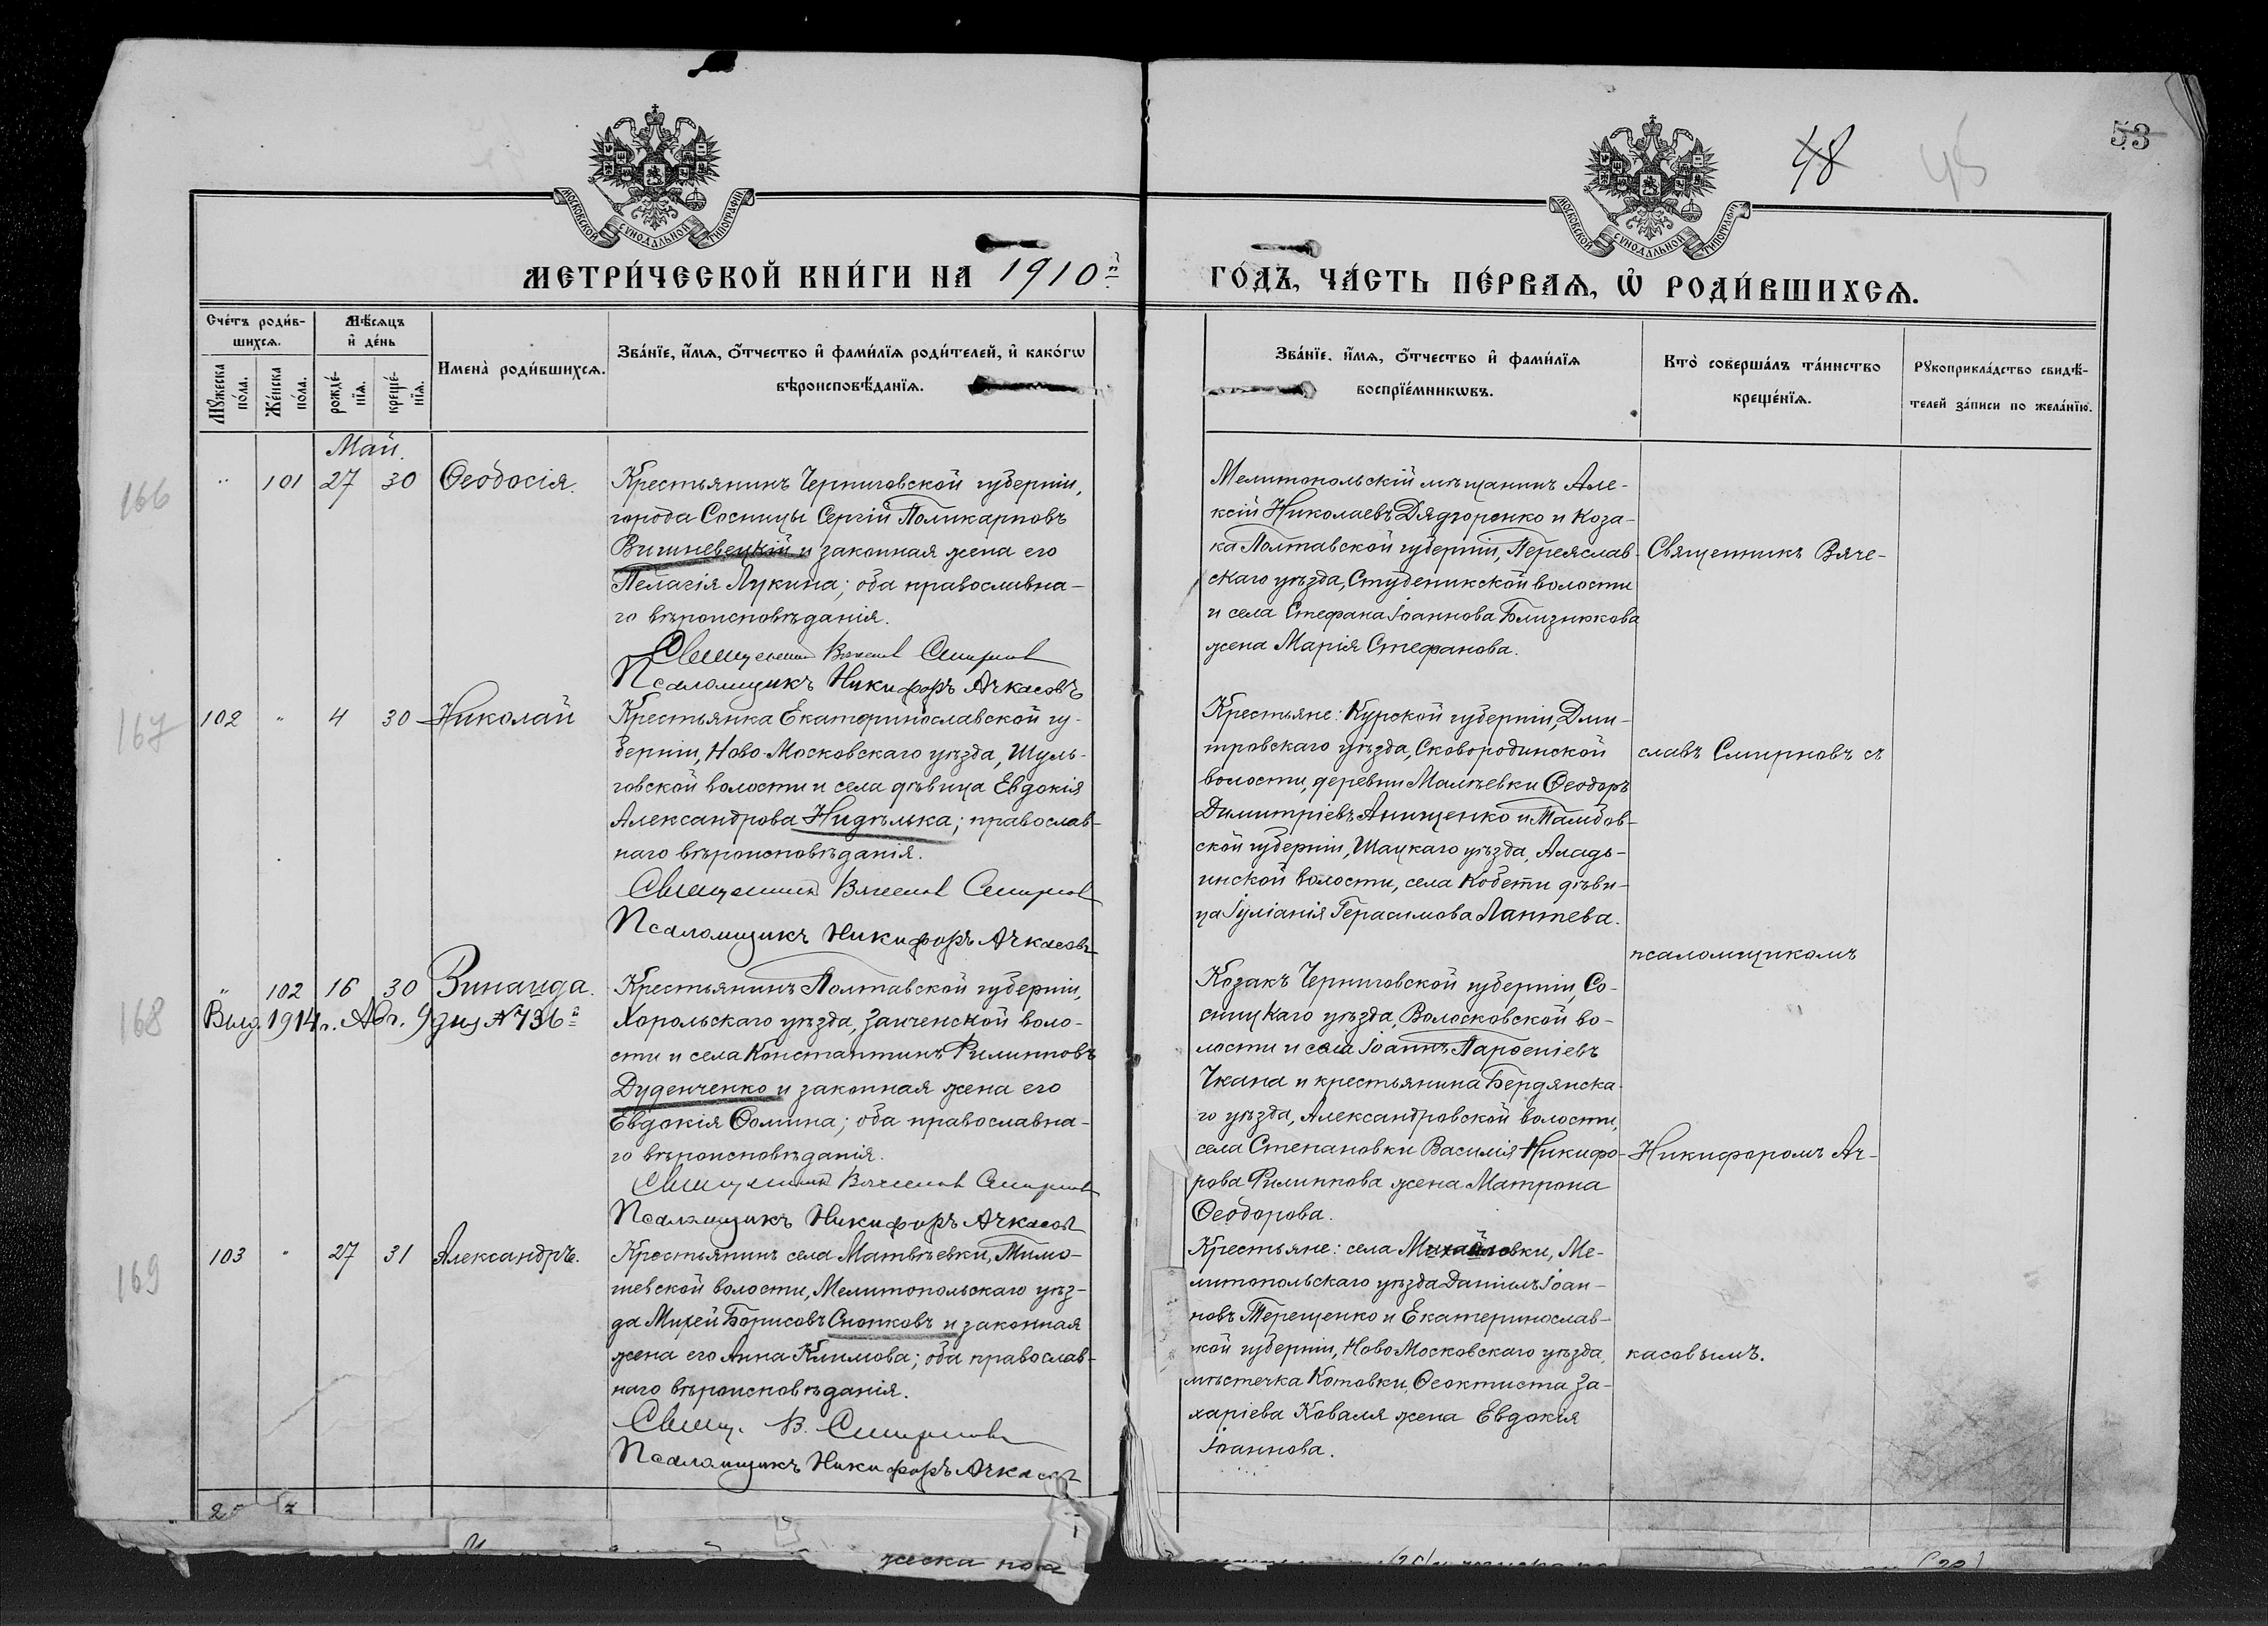 48
45
53
МОСКОВСКОЙ СѴНОДАЛЬНОЙ ТИПОГРАФІИ
МОСКОВСКОЙ СѴНОДАЛЬНОЙ ТИПОГРАФІИ
МЕТРИ́ЧЕСКОЙ КНИ́ГИ НА 1910й
ГО́ДЪ, ЧА́СТЬ ПЕ́РВАѦ, Ѽ РОДИ́ВШИХСѦ.
Сче́тъ роди́в-
шихсѧ.
Мꙋ́жеска
по́ла.
Же́нска
по́ла.
Мѣ́сѧцъ
и҆ де́нь
рожде́-
нїѧ.
креще́-
нїѧ.
Имена̀ роди́вшихсѧ.
Зва́нїе, и҆́мѧ, ѻ҆́тчество и҆ фами́лїѧ роди́телей, и҆ како́гѡ
вѣроисповѣ́данїѧ.
Зва́нїе, и҆́мѧ, ѻ҆́тчество и҆ фами́лїѧ
воспрїе́мникѡвъ.
Кто̀ соверша́лъ та́инство
креще́нїѧ.
Рꙋкоприкла́дство свидѣ́-
телей за́писи по жела́нїю.
Май.
166
" 101 27 30 Ѳеодосія.
Крестьянинъ Черниговской губерніи,
города Сосницы Сергій Поликарповъ
Вишневецкій и законная жена его
Пелагія Лукина; оба православна-
го вѣроисповѣданія.
Священникъ Вячеславъ Смирновъ
Псаломщикъ Никифоръ Ачкасовъ
Мелитопольскій мѣщанинъ Але-
ксій Николаевъ Дядюренко и Коза-
ка Полтавской губерніи, Переяслав-
скаго уѣзда, Студеникской волости
и села Стефана Іоаннова Близнюкова
жена Марія Стефанова.
Священникъ Вяче-
167
102 " 4 30 Николай
Крестьянка Екатеринославской гу-
берніи, Ново-Московскаго уѣзда, Шуль-
говской волости и села дѣвица Евдокія
Александрова Нидѣлька; православ-
наго вѣроисповѣданія.
Священникъ Вячеславъ Смирновъ
Псаломщикъ Никифоръ Ачкасовъ
Крестьяне: Курской губерніи, Дми-
тровскаго уѣзда, Сковородинской
волости, деревни Малѣевки Ѳеодоръ
Димитріевъ Анищенко и Тамбов-
ской губерніи, Шацкаго уѣзда, Аладь-
инской волости, села Кобети дѣви-
ца Іуліанія Герасимова Лаптева.
славъ Смирновъ съ
псаломщикомъ
168
" 102 16 30 Зинаида.
Выд. 1914 г. Авг. 9 дня № 736й
Крестьянинъ Полтавской губерніи,
Хорольскаго уѣзда, Заиченской воло-
сти и села Константинъ Филипповъ
Дуденченко и законная жена его
Евдокія Ѳомина; оба православна-
го вѣроисповѣданія.
Священникъ Вячеславъ Смирновъ
Псаломщикъ Никифоръ Ачкасовъ
Козакъ Черниговской губерніи, Со-
сницкаго уѣзда, Волосковской во-
лости и села Іоаннъ Парѳеніевъ
Ткача и крестьянина Бердянска-
го уѣзда, Александровской волости,
села Степановки Василія Никифо-
рова Филиппова жена Матрона
Ѳеодорова.
Никифоромъ Ач-
169
103 " 27 31 Александръ.
Крестьянинъ села Матвѣевки, Тимо-
шевской волости, Мелитопольскаго уѣз-
да Михей Борисовъ Снопковъ и законная
жена его Анна Климова; оба православ-
наго вѣроисповѣданія.
Свящ. В. Смирновъ
Псаломщикъ Никифоръ Ачкасовъ
Крестьяне: села Михайловки, Ме-
литопольскаго уѣзда Даніилъ Іоан-
новъ Терещенко и Екатеринослав-
кой губерніи, Ново Московскаго уѣзда,
мѣстечка Котовки, Ѳеоктиста За-
харіева Коваля жена Евдокія
Іоаннова.
касовымъ.
жеска пола